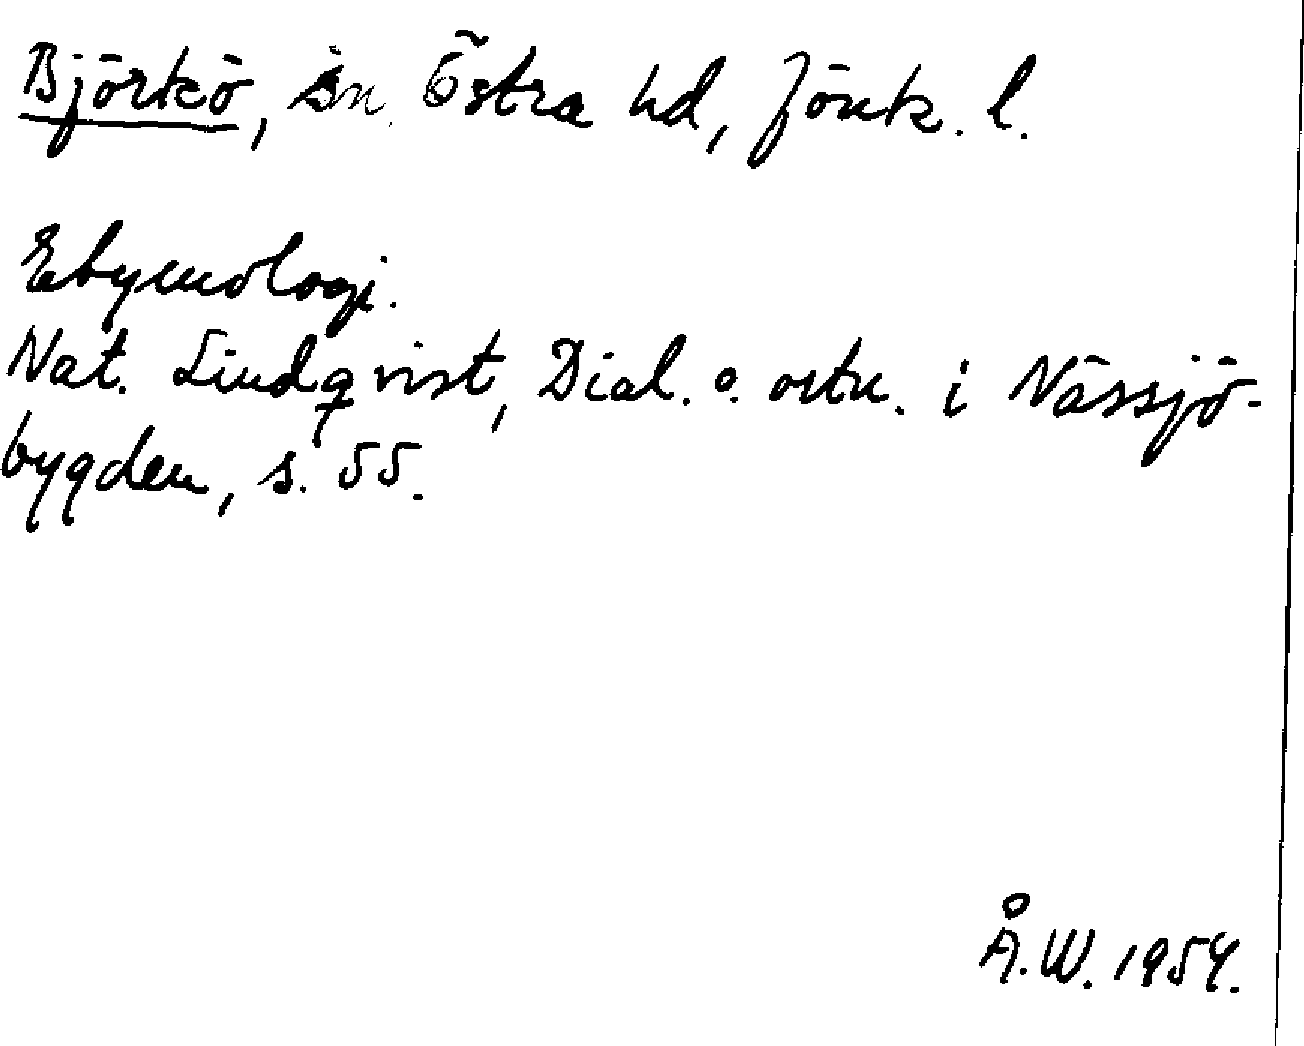 Björkö, sn. Östra hd, Jönk. l.
Etymologi.
Nat. Lindqvist, Dial. o. ortn. i Nässjö-
bygden, s. 55.
Å.W. 1954.